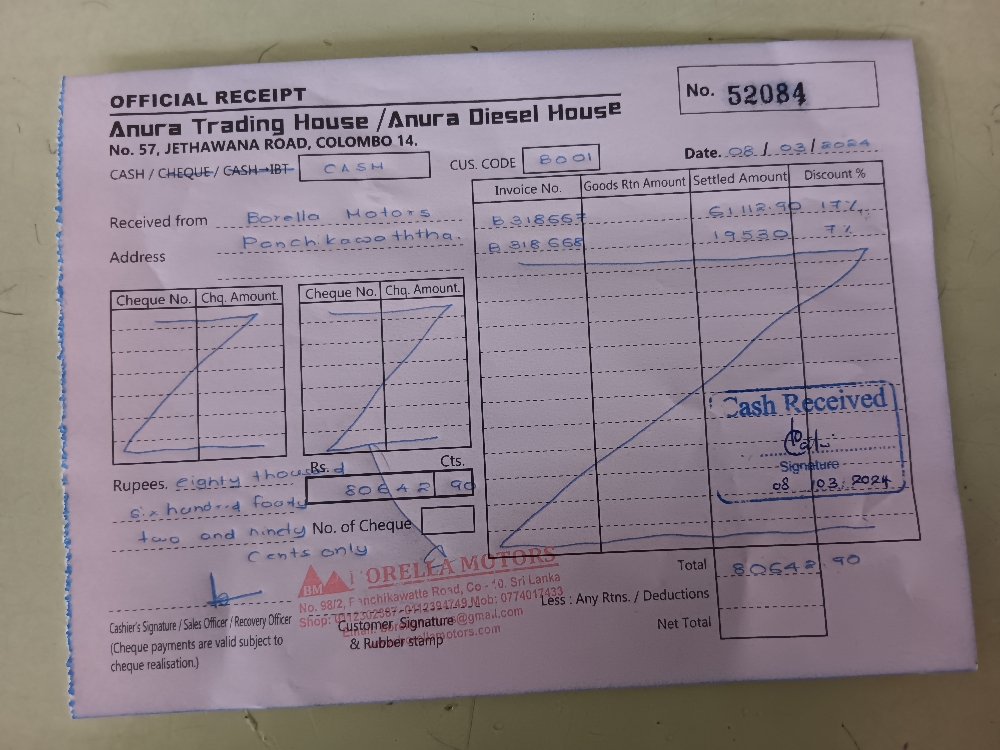 OFFICIAL RECEIPT
No. 52084
Anura Trading House / Anura Diesel House
No. 57, JETHAWANA ROAD, COLOMBO 14.
Date. 08 / 03 / 2024
CASH / CHEQUE / CASH-IBT CASH
CUS. CODE B001
Received from Borella Motors
Address Panchikawaththa.
Invoice No. Goods Rtn Amount Settled Amount Discount %
B 318667 61112.90 17%
B 318668 19530 7%
Cheque No. Chq. Amount. Cheque No. Chq. Amount.
Cash Received
Signature
08 /03/ 2024
Rs. Cts.
80642 90
Rupees. eighty thousand
six hundred foury
two and ninety
Cents only
No. of Cheque
Total 80642 90
Less : Any Rtns. / Deductions
Net Total
BM ORELLA MOTORS
No. 98/2, Panchikawatte Road, Co - 10. Sri Lanka
Mob: 0774017433
Cashier's Signature / Sales Officer / Recovery Officer
(Cheque payments are valid subject to
cheque realisation.)
Customer Signature
& Rubber stamp